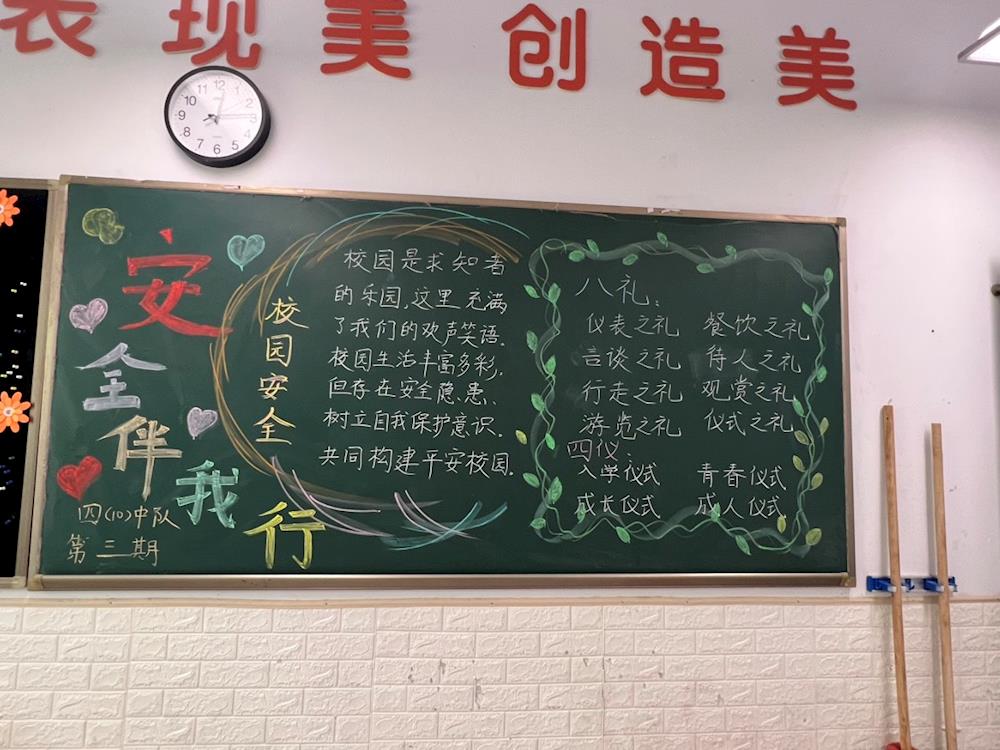 表现美 创造美
12
1
2
3
4
5
6
7
8
9
10
11
安全伴我行
四(10)中队
第三期
校园安全
校园是求知者
的乐园,这里充满
了我们的欢声笑语.
校园生活丰富多彩.
但存在安全隐患、
树立自我保护意识.
共同构建平安校园.
八礼:
仪表之礼 餐饮之礼
言谈之礼 待人之礼
行走之礼 观赏之礼
游览之礼 仪式之礼
四仪:
入学仪式 青春仪式
成长仪式 成人仪式